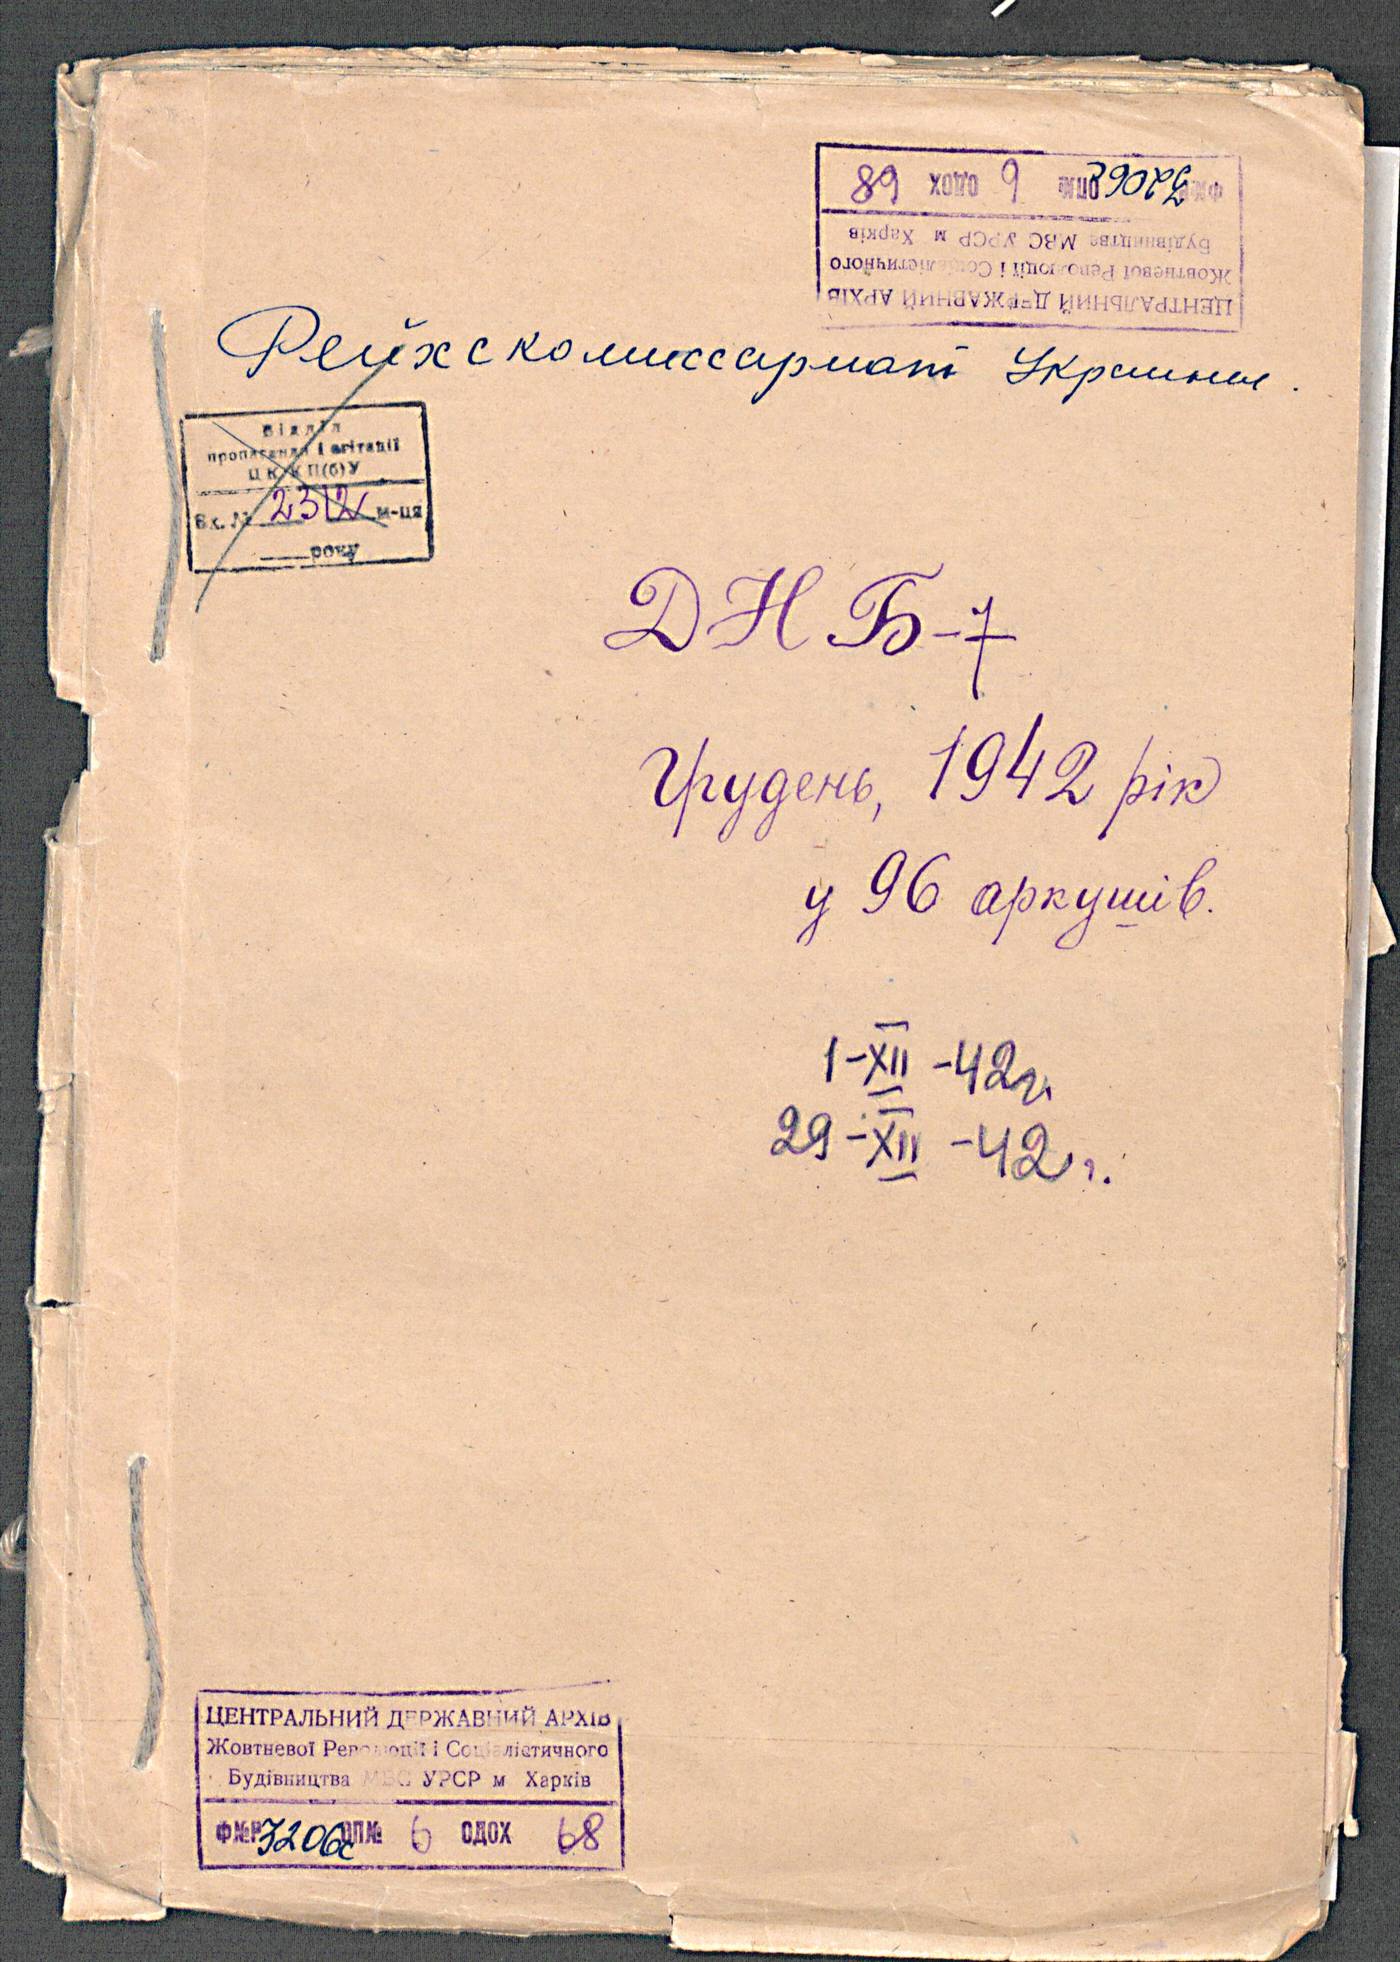 Ф№Р 3206с ОП№ 6 ОДОХ 68
ЦЕНТРАЛЬНИЙ ДЕРЖАВНИЙ АРХІВ
Жовтневої Революції і Соціалістичного
Будівництва МВС УРСР м Харків
Рейхскомиссариат Украины.
Відділ
пропаганди і агітації
ЦК КП(б)У
Вх. № 2312 м-ця
року
ДНБ-7
Грудень, 1942 рік
у 96 аркушів.
1-XII-42г.
29-XII-42г.
ЦЕНТРАЛЬНИЙ ДЕРЖАВНИЙ АРХІВ
Жовтневої Революції і Соціалістичного
Будівництва МВС УРСР м Харків
Ф№Р 3206с ОП№ 6 ОДОХ 68